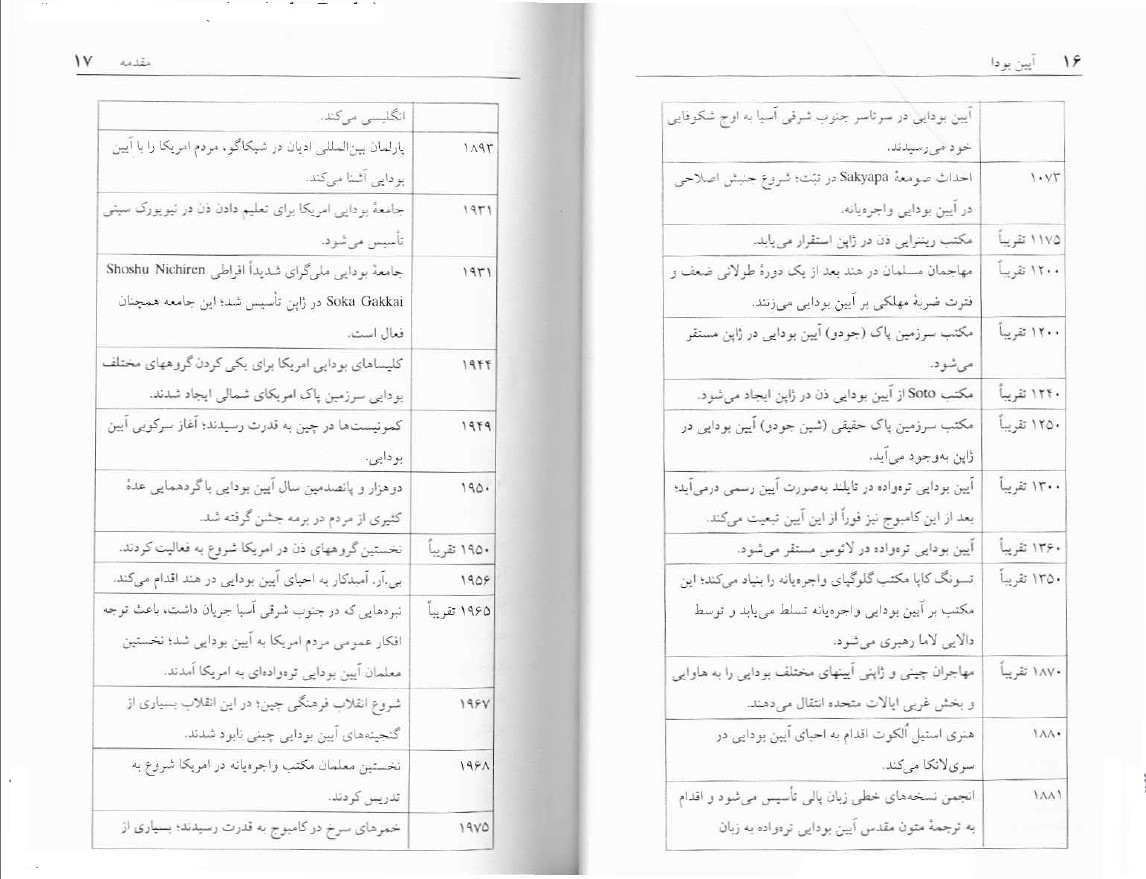 ۱۶ آیین بودا
آیین بودایی در سرتاسر جنوب شرقی آسیا به اوج شکوفایی
خود می‌رسیدند.
۱۰۷۳ احداث صومعهٔ Sakyapa در تبّت؛ شروع جنبش اصلاحی
در آیین بودایی واجره‌یانه.
۱۱۷۵ تقریباً مکتب رینزایی ذن در ژاپن استقرار می‌یابد.
۱۲۰۰ تقریباً مهاجمان مسلمان در هند بعد از یک دورهٔ طولانی ضعف و
فترت ضربهٔ مهلکی بر آیین بودایی می‌زنند.
۱۲۰۰ تقریباً مکتب سرزمین پاک (جودو) آیین بودایی در ژاپن مستقر
می‌شود.
۱۲۴۰ تقریباً مکتب Soto از آیین بودایی ذن در ژاپن ایجاد می‌شود.
۱۲۵۰ تقریباً مکتب سرزمین پاک حقیقی (شین جودو) آیین بودایی در
ژاپن به‌وجود می‌آید.
۱۳۰۰ تقریباً آیین بودایی تره‌واده در تایلند به‌صورت آیین رسمی درمی‌آید؛
بعد از این کامبوج نیز فوراً از این آیین تبعیت می‌کند.
۱۳۶۰ تقریباً آیین بودایی تره‌واده در لائوس مستقر می‌شود.
۱۳۵۰ تقریباً تسونگ کاپا مکتب گلوگپای واجره‌یانه را بنیاد می‌کند؛ این
مکتب بر آیین بودایی واجره‌یانه تسلط می‌یابد و توسط
دالایی لاما رهبری می‌شود.
۱۸۷۰ تقریباً مهاجران چینی و ژاپنی آیینهای مختلف بودایی را به هاوایی
و بخش غربی ایالات متحده انتقال می‌دهند.
۱۸۸۰ هنری استیل اُلکوت اقدام به احیای آیین بودایی در
سری‌لانکا می‌کند.
۱۸۸۱ انجمن نسخه‌های خطی زبان پالی تأسیس می‌شود و اقدام
به ترجمهٔ متون مقدس آیین بودایی تره‌واده به زبان
مقدمه ۱۷
انگلیسی می‌کند.
۱۸۹۳ پارلمان بین‌المللی ادیان در شیکاگو، مردم امریکا را با آیین
بودایی آشنا می‌کند.
۱۹۳۱ جامعهٔ بودایی امریکا برای تعلیم دادن ذن در نیویورک سیتی
تأسیس می‌شود.
۱۹۳۱ جامعهٔ بودایی ملی‌گرای شدیداً افراطی Shoshu Nichiren
Soka Gakkai در ژاپن تأسیس شد؛ این جامعه همچنان
فعال است.
۱۹۴۴ کلیساهای بودایی امریکا برای یکی کردن گروههای مختلف
بودایی سرزمین پاک امریکای شمالی ایجاد شدند.
۱۹۴۹ کمونیست‌ها در چین به قدرت رسیدند؛ آغاز سرکوبی آیین
بودایی.
۱۹۵۰ دوهزار و پانصدمین سال آیین بودایی با گردهمایی عدهٔ
کثیری از مردم در برمه جشن گرفته شد.
۱۹۵۰ تقریباً نخستین گروههای ذن در امریکا شروع به فعالیت کردند.
۱۹۵۶ بی.آر. آمبدکار به احیای آیین بودایی در هند اقدام می‌کند.
۱۹۶۵ تقریباً نبردهایی که در جنوب شرقی آسیا جریان داشت، باعث توجه
افکار عمومی مردم امریکا به آیین بودایی شد؛ نخستین
معلمان آیین بودایی تره‌واده‌ای به امریکا آمدند.
۱۹۶۷ شروع انقلاب فرهنگی چین؛ در این انقلاب بسیاری از
گنجینه‌های آیین بودایی چینی نابود شدند.
۱۹۶۸ نخستین معلمان مکتب واجره‌یانه در امریکا شروع به
تدریس کردند.
۱۹۷۵ خمرهای سرخ در کامبوج به قدرت رسیدند؛ بسیاری از